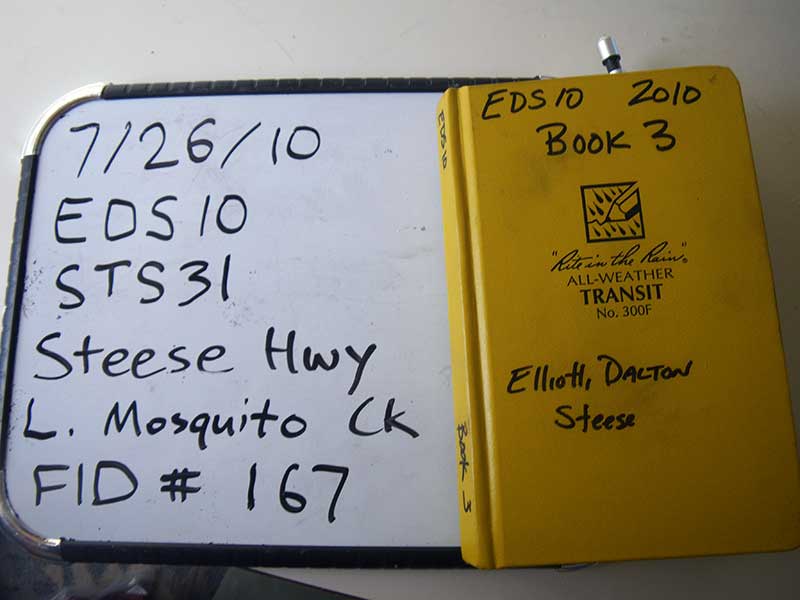 7/26/10
EDS10
STS31
Steese Hwy
L. Mosquito Ck
FID # 167
EDS10
Book 3
EDS10 2010
Book 3
"Rite in the Rain"®
ALL-WEATHER
TRANSIT
No. 300F
Elliott, DALTON
Steese